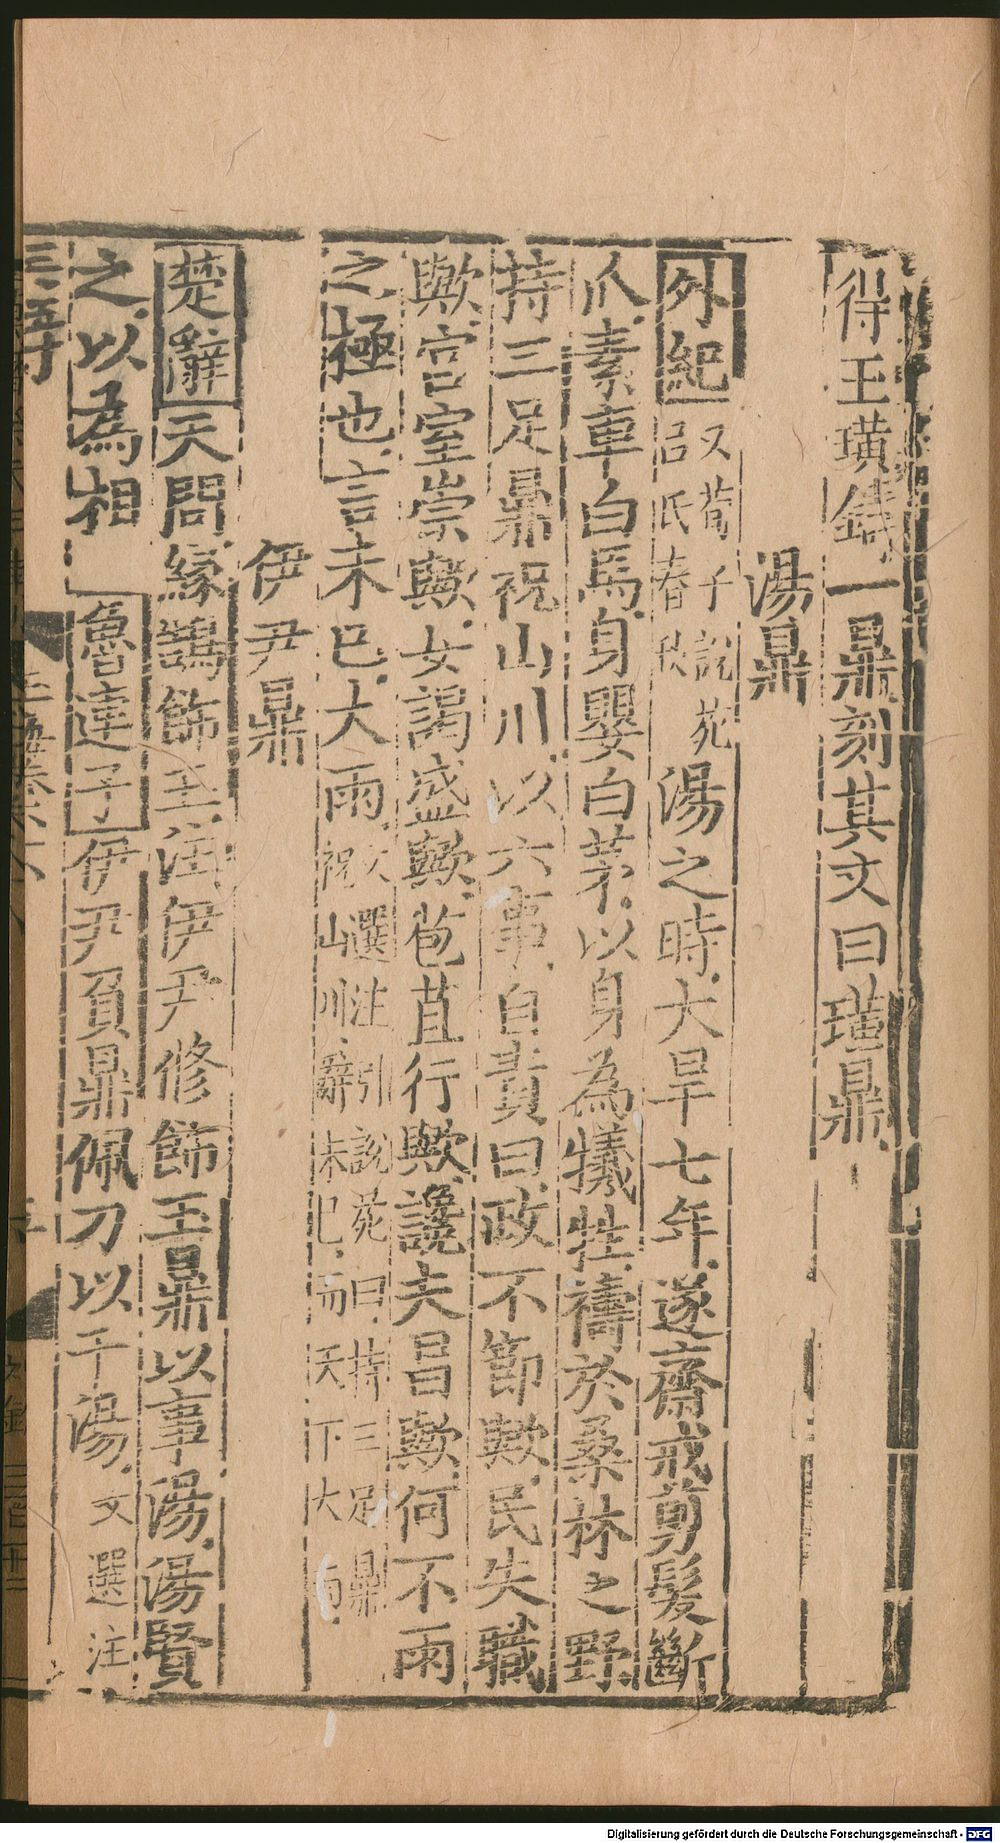 得玉璜鑄一鼎刻其文曰璜鼎
湯鼎
外紀 又荀子說苑 呂氏春秋 湯之時大旱七年遂齋戒剪髮斷
爪素車白馬身嬰白茅以身為犧牲禱於桑林之野
持三足鼎祝山川以六事自責曰政不節歟民失職
歟宫室崇歟女謁盛歟苞苴行歟讒夫昌歟何不雨
之極也言未巳大雨 文選注引說苑曰持三足鼎 祝山川辭未巳而天下大雨
伊尹鼎
楚辭 天問緣鵠飾玉注伊尹修飾玉鼎以事湯湯賢
之以為相 魯連子 伊尹負鼎佩刀以干湯 文選注
Digitalisierung gefördert durch die Deutsche Forschungsgemeinschaft - DFG